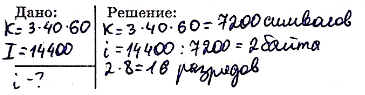 Дано:
K=3·40·60
I=14400
i=?
Решение:
K=3·40·60=7200 символов
i=14400:7200=2 байта
2·8=16 разрядов